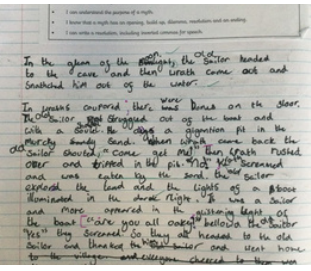 I can understand the purpose of a myth.
I know that a myth has an opening, build up, dilemma, resolution and an ending.
I can write a resolution, including inverted commas for speech.
In the gleam of the moon, the old Sailor headed
to the cave and then wrath came out and
Snatched him out of the water.
In wraths there were Bones on the floor.
The old Sailor Struggled out of the boat and
with a he a gigantic pit in the
Sandy Sand. When wrath came back the
old Sailor shouted, "Come get me!" then wrath rushed
over and in the pit. "No!" Screamed
and was eaten by the sand. the old Sailor
explored the land and the lights of a Boat
illuminated in the dark Night. It was a Sailor
and more appeared in the glistening light of
the boat. "are you all okay?" the Sailor
"Yes" they Screamed So they all headed to the old
Sailor and thanked the Sailor and went home
to the village and everyone cheered